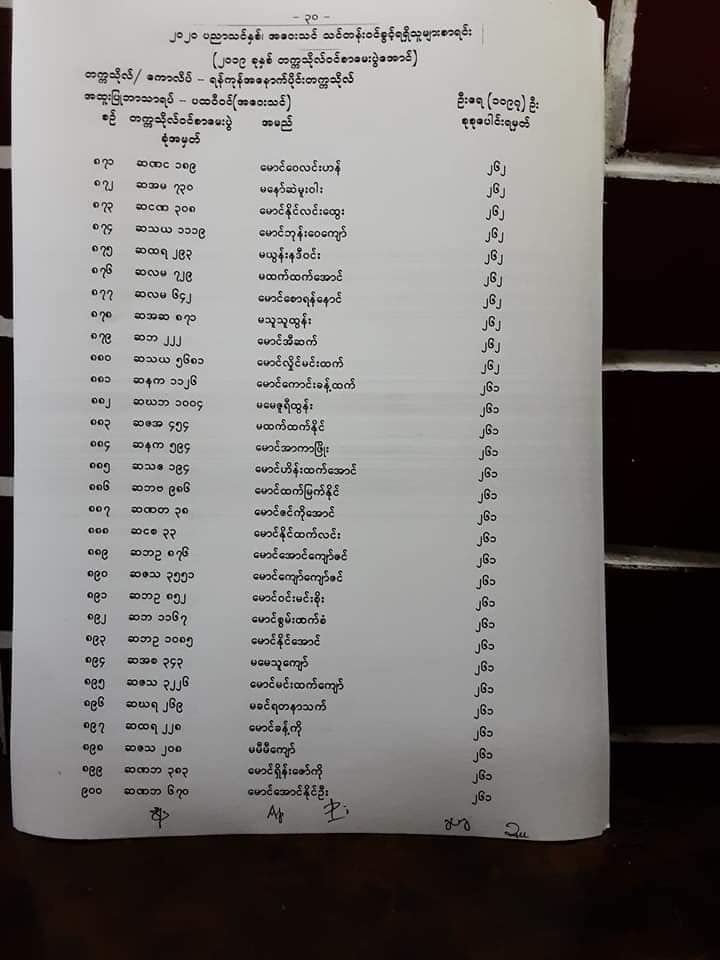 - ၃၀ -
၂၀၂၀ ပညာသင်နှစ်၊ အဝေးသင် သင်တန်းဝင်ခွင့်ရရှိသူများစာရင်း
(၂၀၁၉ ခုနှစ် တက္ကသိုလ်ဝင်စာမေးပွဲအောင်)
တက္ကသိုလ်/ ကောလိပ် - ရန်ကုန်အနောက်ပိုင်းတက္ကသိုလ်
အထူးပြုဘာသာရပ် - ပထဝီဝင်(အဝေးသင်) ဦးရေ (၁၁၉၃) ဦး
စဉ် တက္ကသိုလ်ဝင်စာမေးပွဲ အမည် စုစုပေါင်းရမှတ်
ခုံအမှတ်
၈၇၁ ဆဏင ၁၈၉ မောင်ဝေလင်းဟန် ၂၆၂
၈၇၂ ဆအမ ၇၃၀ မနော်ဆဲမူးဝါး ၂၆၂
၈၇၃ ဆငဏ ၃၀၈ မောင်နိုင်လင်းထွေး ၂၆၂
၈၇၄ ဆသယ ၁၁၁၉ မောင်ဘုန်းဝေကျော် ၂၆၂
၈၇၅ ဆထရ ၂၉၃ မယွန်းနဒီဝင်း ၂၆၂
၈၇၆ ဆလမ ၇၂၉ မထက်ထက်အောင် ၂၆၂
၈၇၇ ဆလမ ၆၄၂ မောင်စောရန်နောင် ၂၆၂
၈၇၈ ဆအဆ ၈၇၁ မသူသူထွန်း ၂၆၂
၈၇၉ ဆဘ ၂၂၂ မောင်အီဆက် ၂၆၂
၈၈၀ ဆသယ ၅၆၈၁ မောင်လှိုင်မင်းထက် ၂၆၂
၈၈၁ ဆနက ၁၁၂၆ မောင်ကောင်းခန့်ထက် ၂၆၁
၈၈၂ ဆဃဘ ၁၀၀၄ မမေဇူရီထွန်း ၂၆၁
၈၈၃ ဆဇအ ၄၅၄ မထက်ထက်နိုင် ၂၆၁
၈၈၄ ဆနက ၅၉၄ မောင်အာကာဖြိုး ၂၆၁
၈၈၅ ဆသဇ ၁၉၄ မောင်ဟိန်းထက်အောင် ၂၆၁
၈၈၆ ဆဘဗ ၉၈၆ မောင်ထက်မြက်နိုင် ၂၆၁
၈၈၇ ဆဏတ ၃၈ မောင်ဇင်ကိုအောင် ၂၆၁
၈၈၈ ဆငစ ၃၃ မောင်နိုင်ထက်လင်း ၂၆၁
၈၈၉ ဆဘဥ ၈၇၆ မောင်အောင်ကျော်ဇင် ၂၆၁
၈၉၀ ဆဇသ ၃၅၅၁ မောင်ကျော်ကျော်ဇင် ၂၆၁
၈၉၁ ဆဘဥ ၈၅၂ မောင်ဝင်းမင်းစိုး ၂၆၁
၈၉၂ ဆဘ ၁၁၆၇ မောင်စွမ်းထက်စံ ၂၆၁
၈၉၃ ဆဘဥ ၁၀၈၅ မောင်နိုင်အောင် ၂၆၁
၈၉၄ ဆအစ ၃၄၃ မမေသူကျော် ၂၆၁
၈၉၅ ဆဇသ ၃၂၂၆ မောင်မင်းထက်ကျော် ၂၆၁
၈၉၆ ဆဃရ ၂၆၉ မခင်ရတနာသက် ၂၆၁
၈၉၇ ဆထရ ၂၂၈ မောင်ခန့်ကို ၂၆၁
၈၉၈ ဆဇသ ၂၀၈ မမီမီကျော် ၂၆၁
၈၉၉ ဆဏဘ ၃၈၃ မောင်ရှိန်းဇော်ကို ၂၆၁
၉၀၀ ဆဏဘ ၆၇၀ မောင်အောင်နိုင်ဦး ၂၆၁